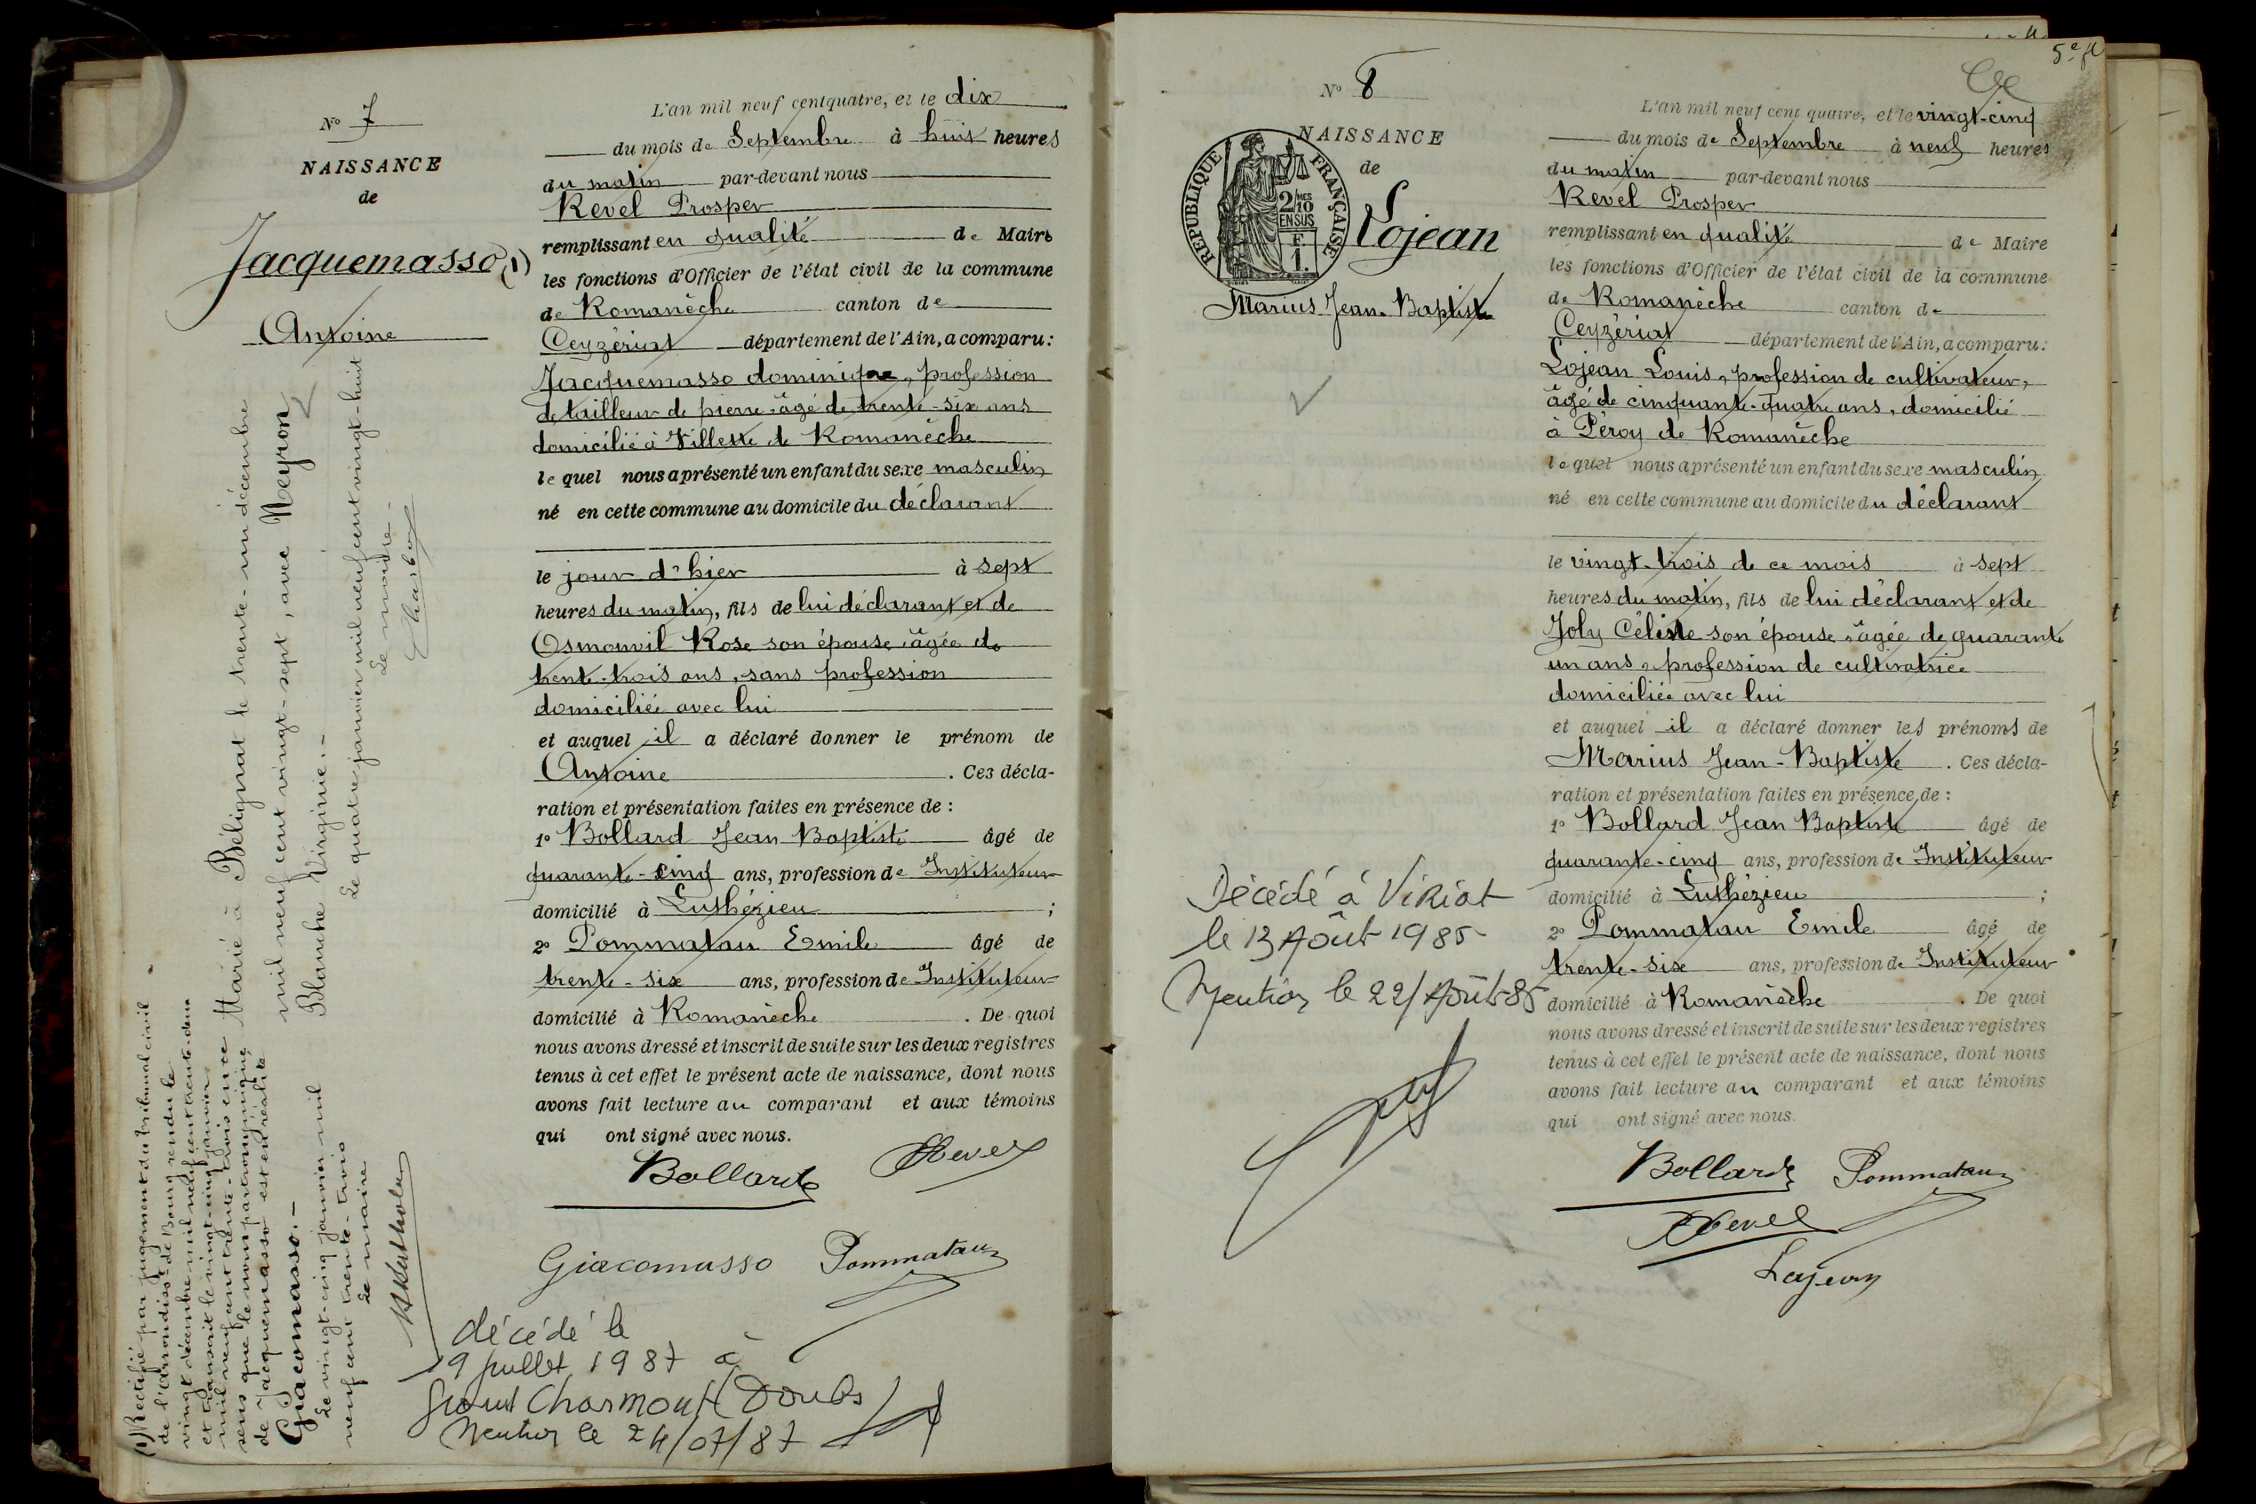 N° 7
NAISSANCE
de
Jacquemasso (1)
Antoine
L'an mil neuf cent quatre, et le dix
du mois de Septembre à huit heures
du matin par-devant nous
Revel Prosper
remplissant en qualité de Maire
les fonctions d'Officier de l'état civil de la commune
de Romanèche canton de
Ceyzériat département de l'Ain, a comparu :
Jacquemasso dominique, profession
de tailleur de pierre, âgé de trente-six ans
domicilié à Villette de Romanèche
lequel nous a présenté un enfant du sexe masculin
né en cette commune au domicile du déclarant
le jour d'hier à sept
heures du matin, fils de lui déclarant et de
Osmonvil Rose son épouse, âgée de
trente-trois ans, sans profession
domiciliée avec lui
et auquel il a déclaré donner le prénom de
Antoine . Ces décla-
ration et présentation faites en présence de :
1° Bollard Jean Baptiste âgé de
quarante-cinq ans, profession de Instituteur
domicilié à Luthézieu ;
2° Pommatau Emile âgé de
trente-six ans, profession de Instituteur
domicilié à Romanèche . De quoi
nous avons dressé et inscrit de suite sur les deux registres
tenus à cet effet le présent acte de naissance, dont nous
avons fait lecture au comparant et aux témoins
qui ont signé avec nous.
Bollard Revel
Giacomasso Pommatau
Marié à Bélignat le trente-un décembre
mil neuf cent vingt-sept, avec Neyron
Blanche Virginie.-
Le quatre janvier mil neuf cent vingt-huit
Le maire.-
(1) Rectifié par jugement du tribunal civil
de l'arrondisst de Bourg rendu le
vingt décembre mil neuf cent trente-deux
et transcrit le vingt-cinq janvier
mil neuf cent trente-trois en ce
sens que le nom patronymique
de Jacquemasso est en réalité
Giacomasso.-
Le vingt-cinq janvier mil
neuf cent trente-trois
Le maire
décédé le
19 juillet 1987 à
Grand Charmont (Doubs
Mention le 24/07/87
5e f
N° 8
NAISSANCE
de
REPUBLIQUE FRANÇAISE
2/10 EN SUS
F. 1.
Lojean
Marius Jean-Baptiste
L'an mil neuf cent quatre, et le vingt-cinq
du mois de Septembre à neuf heures
du matin par-devant nous
Revel Prosper
remplissant en qualité de Maire
les fonctions d'Officier de l'état civil de la commune
de Romanèche canton de
Ceyzériat département de l'Ain, a comparu :
Lojean Louis, profession de cultivateur,
âgé de cinquante-quatre ans, domicilié
à Péroy de Romanèche
lequel nous a présenté un enfant du sexe masculin
né en cette commune au domicile du déclarant
le vingt-trois de ce mois à sept
heures du matin, fils de lui déclarant et de
Joly Céline son épouse, âgée de quarante
un ans, profession de cultivatrice
domiciliée avec lui
et auquel il a déclaré donner les prénoms de
Marius Jean-Baptiste . Ces décla-
ration et présentation faites en présence de :
1° Bollard Jean Baptiste âgé de
quarante-cinq ans, profession de Instituteur
domicilié à Luthézieu ;
2° Pommatau Emile âgé de
trente-six ans, profession de Instituteur
domicilié à Romanèche . De quoi
nous avons dressé et inscrit de suite sur les deux registres
tenus à cet effet le présent acte de naissance, dont nous
avons fait lecture au comparant et aux témoins
qui ont signé avec nous.
Bollard Pommatau
Revel
Lojean
Décédé à ViRiat
le 13 Août 1985
Mention le 22/Août 85